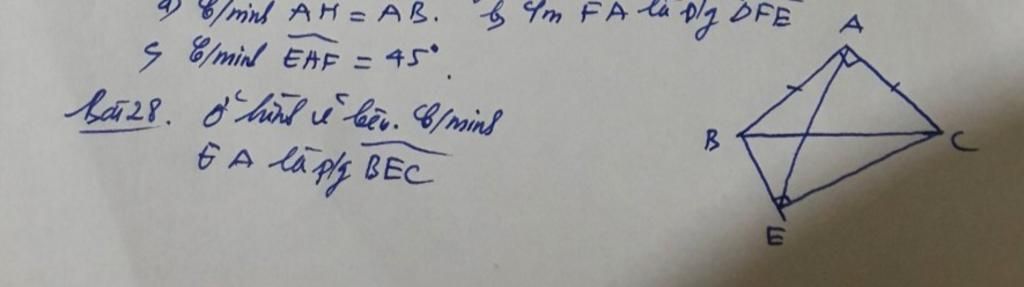 a) C/minh AH = AB. b) C/m FA là p/g DFE
c) C/minh EAF = 45°.
Bài 28. Ở hình vẽ bên. C/minh
EA là p/g BEC
A
B
C
E